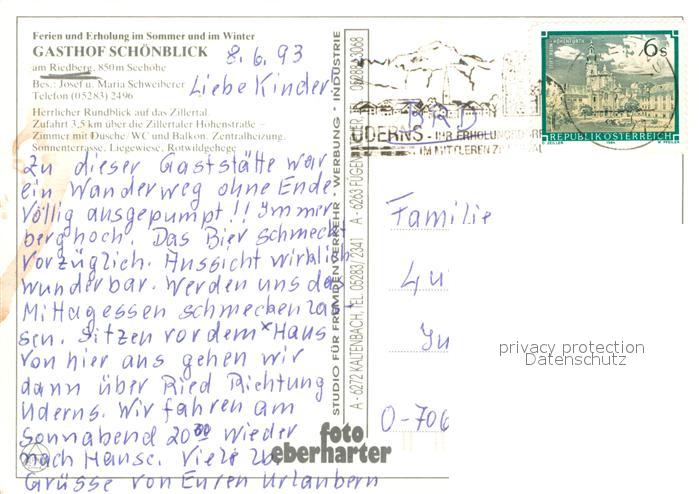 Ferien und Erholung im Sommer und im Winter
GASTHOF SCHÖNBLICK
am Riedberg, 850m Seehöhe
Bes.: Josef u. Maria Schweiberer
Telefon (05283) 2496
Herrlicher Rundblick auf das Zillertal.
Zufahrt 3,5 km über die Zillertaler Höhenstraße –
Zimmer mit Dusche/WC und Balkon. Zentralheizung,
Sonnenterrasse, Liegewiese, Rotwildgehege
8.6.93
Liebe Kinder
Zu dieser Gaststätte war
ein Wanderweg ohne Ende.
Völlig ausgepumpt!! Immer
berghoch. Das Bier schmeckt
vorzüglich. Aussicht wirklich
wunderbar. Werden uns das
Mittagessen schmecken las-
sen. Sitzen vor dem x Haus
von hier aus gehen wir
dann über Ried Richtung
Uderns. Wir fahren am
Sonnabend 20 00 wieder
nach Hause. Viele
Grüsse von Euren Urlaubern
STUDIO FÜR FREMDENVERKEHR - WERBUNG - INDUSTRIE
A - 6272 KALTENBACH, TEL. 05283 / 2341 A - 6263 FÜGEN 05288/3068
foto
eberharter
BRD
UDERNS - IHR ERHOLUNGS
IM MITTLEREN
6 s
REPUBLIK ÖSTERREICH
Familie
O-706
privacy protection
Datenschutz